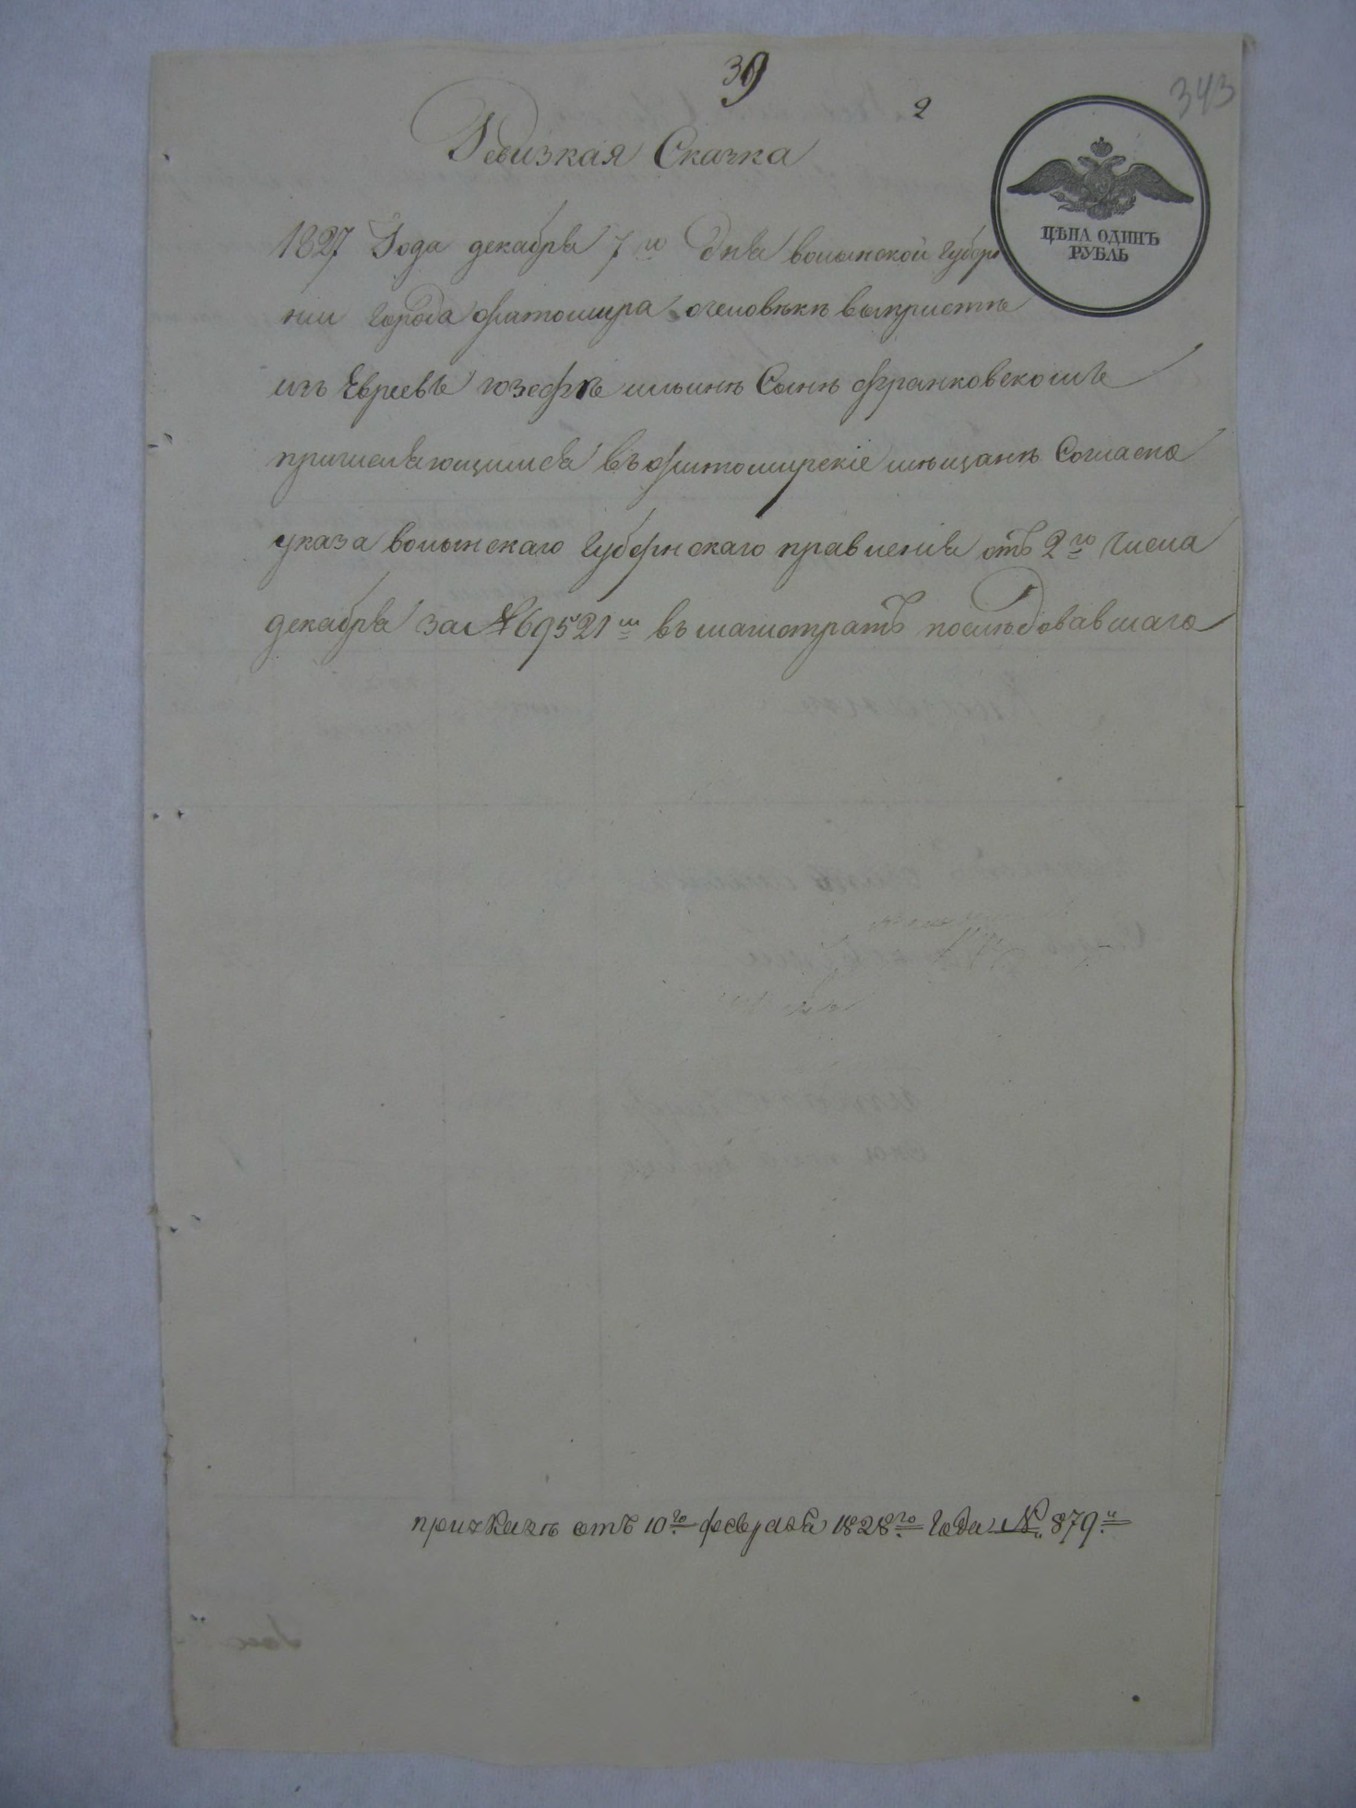 39
2
343
Ревизкая Сказка
ЦѢНА ОДИНЪ
РУБЛЬ
1827 Года декабря 7го дня волынской Губер
нии города житомира очеловѣкѣ выкристѣ
изъ Евреевъ юзефѣ ильинѣ Сынѣ франковскомъ
причисляющимся въ житомирские мѣщанѣ Согласно
указа волынскаго Губернскаго правления отъ 2го числа
декабря за № 69521м въ магистратъ последовавшаго
при указѣ отъ 10го февраля 1828го года № 879й